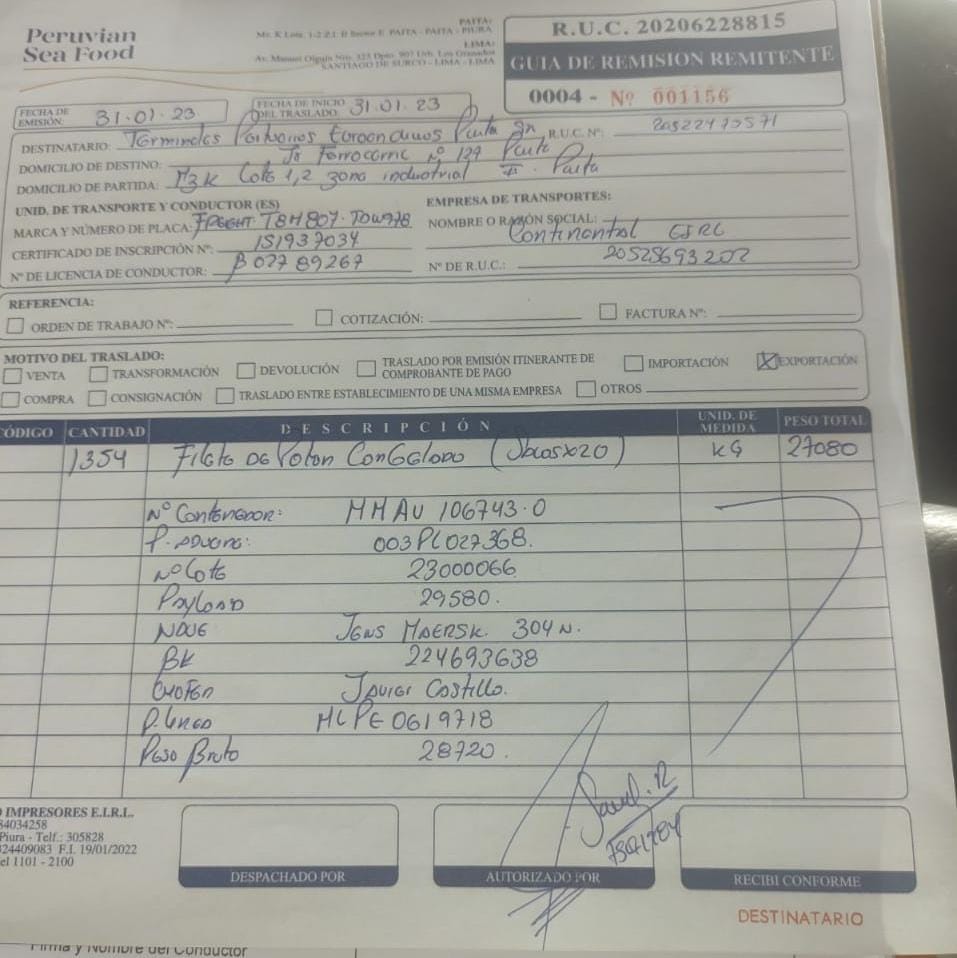 Peruvian
Sea Food
PAITA:
Mz. K Lote. 1-2 Z.I. II Sector E PAITA - PAITA - PIURA
LIMA:
Av. Manuel Olguin Nro. 325 Dpto. 907 Urb. Los Granados
SANTIAGO DE SURCO - LIMA - LIMA
R.U.C. 20206228815
GUIA DE REMISION REMITENTE
0004 - Nº 001156
FECHA DE EMISIÓN: 31.01.23
FECHA DE INICIO DEL TRASLADO: 31.01.23
DESTINATARIO: Terminales Portuarios Euroandinos Paita
R.U.C. Nº: 20522473571
DOMICILIO DE DESTINO: Jr Ferrocarril Nº 127 Paita
DOMICILIO DE PARTIDA: Mz K Lote 1,2 zona industrial II. Paita
UNID. DE TRANSPORTE Y CONDUCTOR (ES)
EMPRESA DE TRANSPORTES:
MARCA Y NÚMERO DE PLACA: TBH807.
NOMBRE O RAZÓN SOCIAL: Continental
CERTIFICADO DE INSCRIPCIÓN Nº: 151937034
Nº DE LICENCIA DE CONDUCTOR: B02789267
Nº DE R.U.C.: 20525693202
REFERENCIA:
ORDEN DE TRABAJO Nº:
COTIZACIÓN:
FACTURA Nº:
MOTIVO DEL TRASLADO:
VENTA
TRANSFORMACIÓN
DEVOLUCIÓN
TRASLADO POR EMISIÓN ITINERANTE DE COMPROBANTE DE PAGO
IMPORTACIÓN
EXPORTACIÓN
COMPRA
CONSIGNACIÓN
TRASLADO ENTRE ESTABLECIMIENTO DE UNA MISMA EMPRESA
OTROS
CÓDIGO CANTIDAD DESCRIPCIÓN UNID. DE MEDIDA PESO TOTAL
1354 Filete De Poton Congelado (Sacosx20) KG 27080
Nº Contenedor: MMAU 106743.0
P. Aduana: 003PL027368.
Nº Lote 23000066
Payload 29580.
Nave Jens Maersk. 304 N.
BK 224693638
Chofer Javier Castillo.
P. Linea MLPE0619718
Peso Bruto 28720.
IMPRESORES E.I.R.L.
84034258
Piura - Telf.: 305828
324409083 F.I. 19/01/2022
el 1101 - 2100
DESPACHADO POR
AUTORIZADO POR
RECIBI CONFORME
DESTINATARIO
Firma y Nombre del Conductor